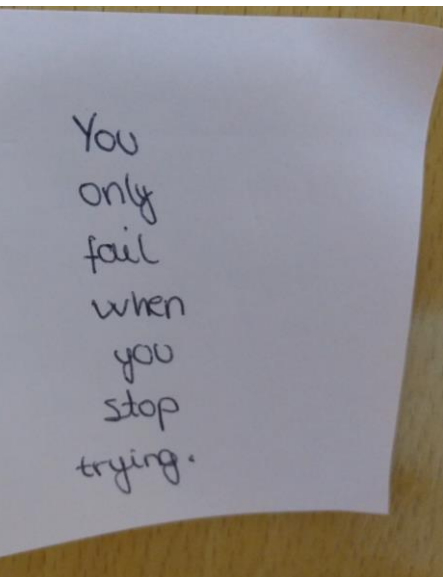 You
only
fail
when
you
stop
trying.